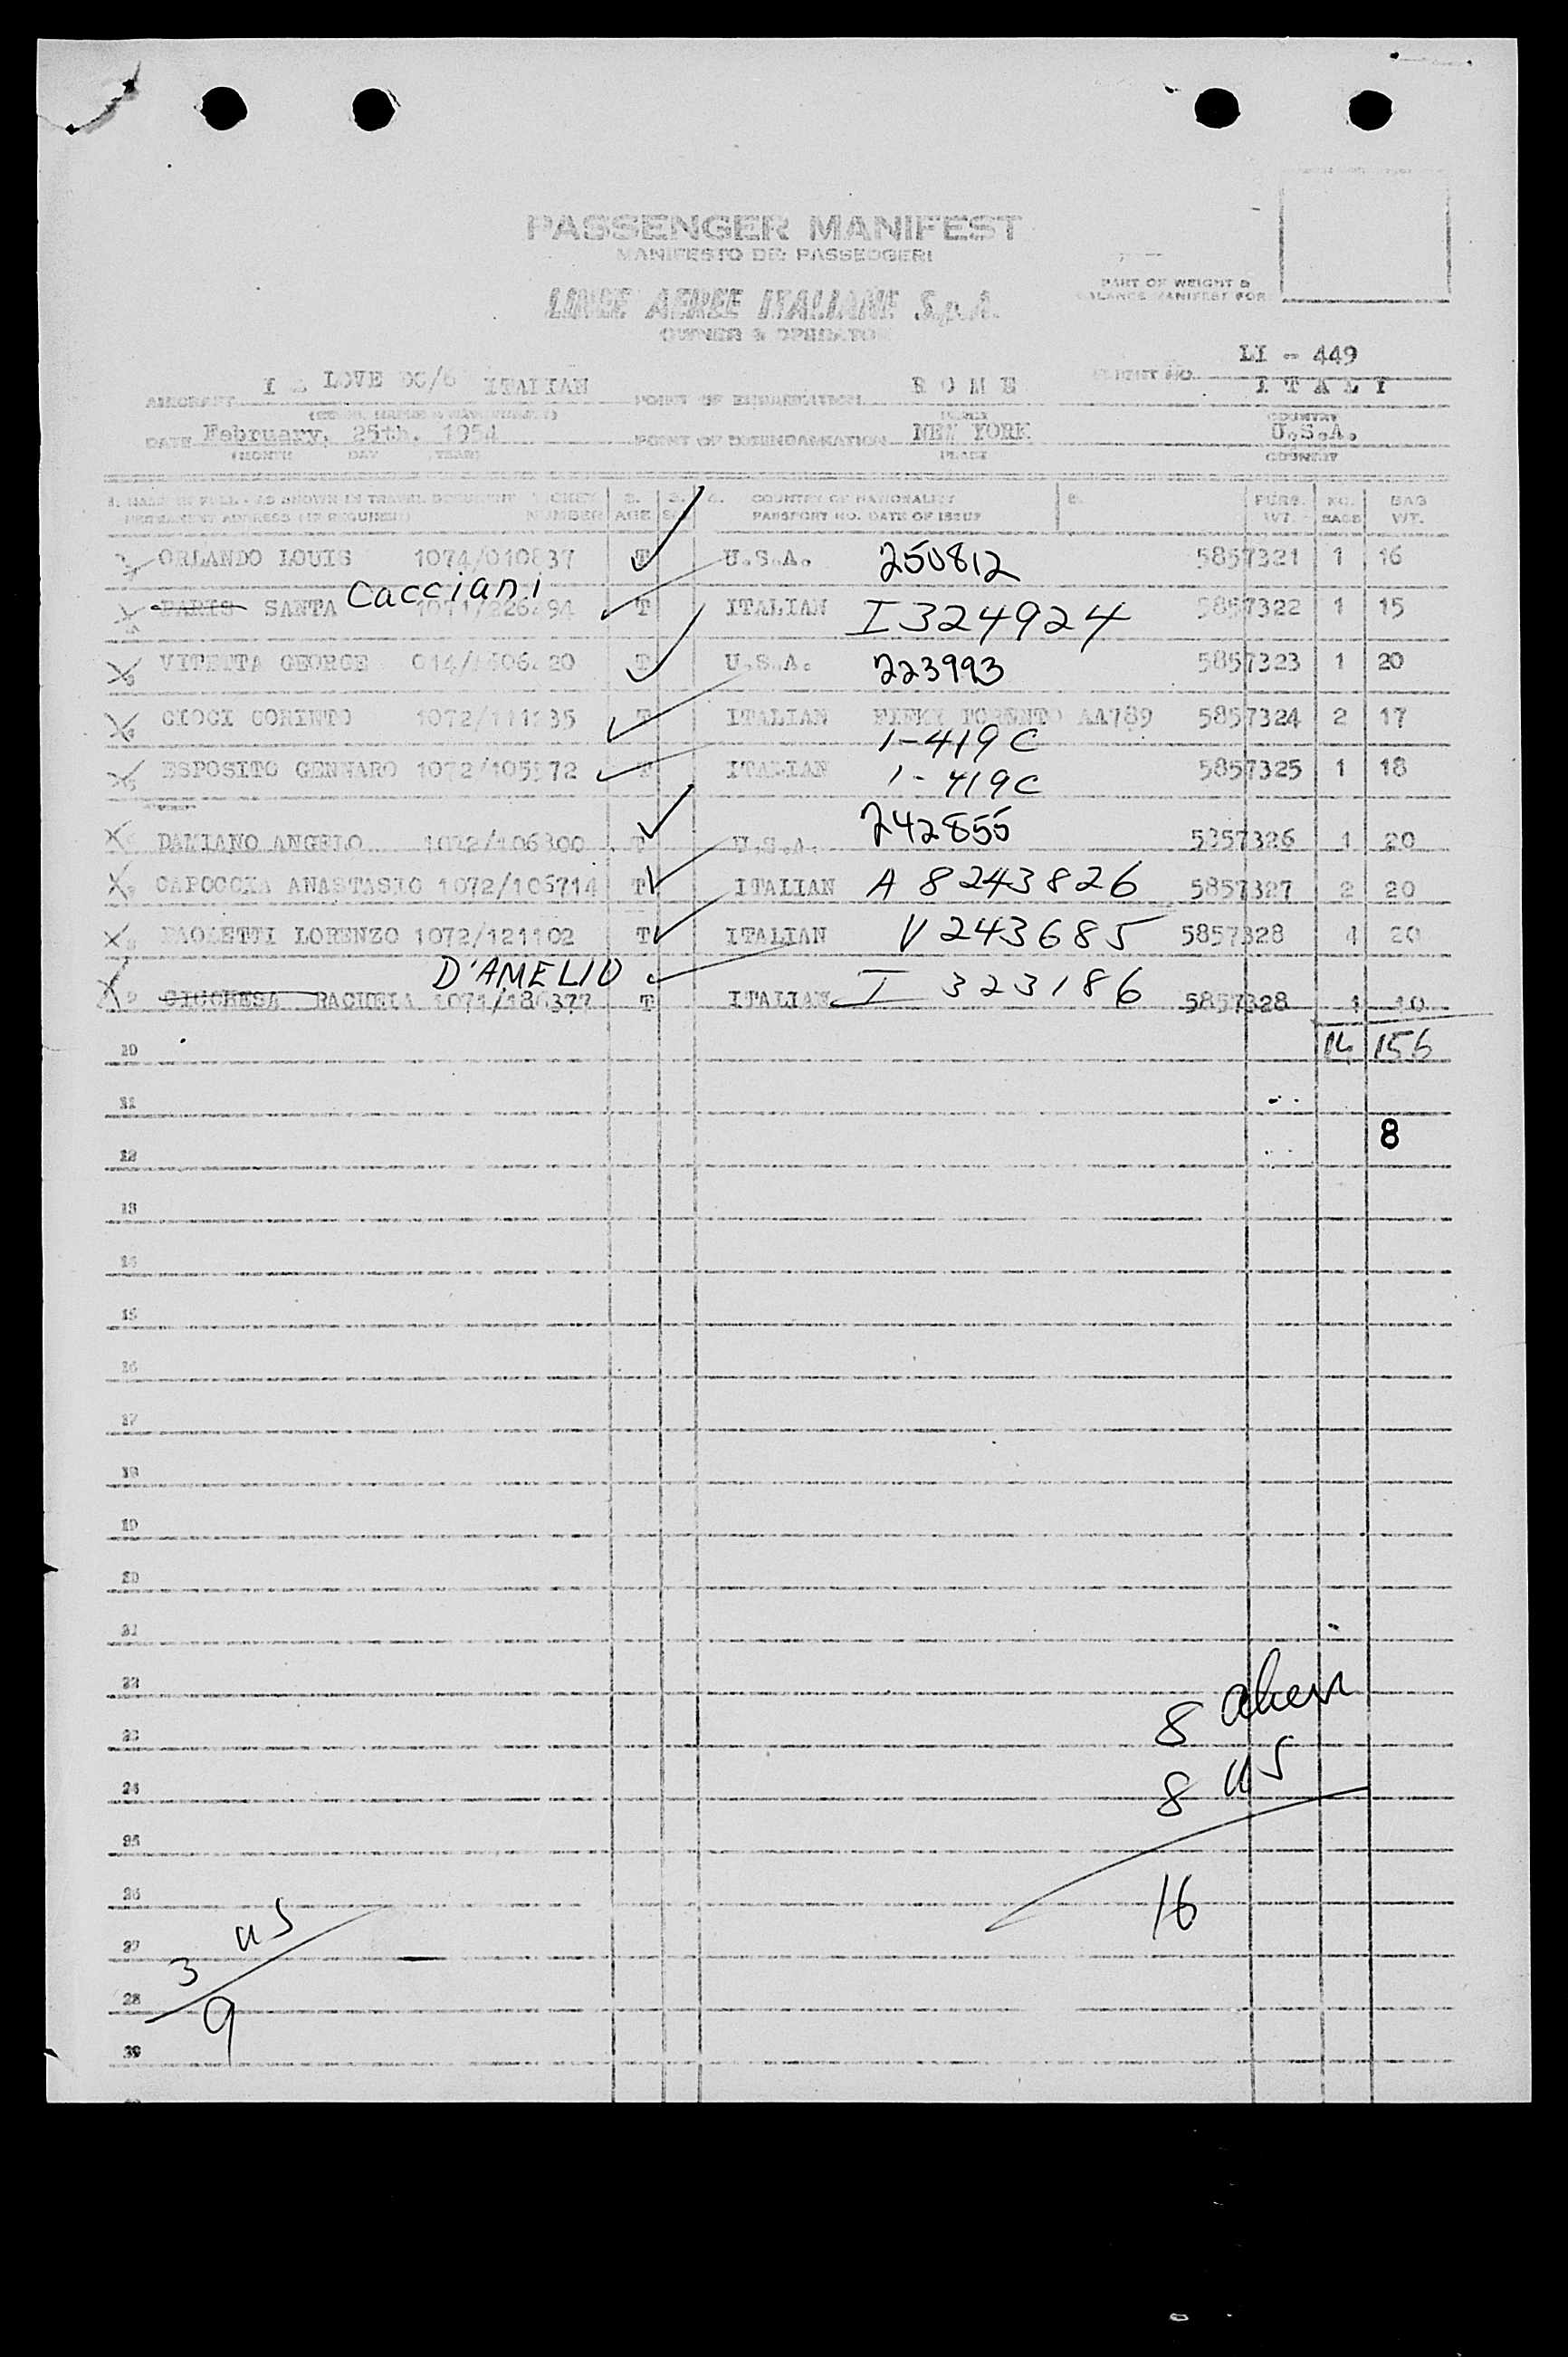 PASSENGER MANIFEST
MANIFESTO DEI PASSEGGERI
LINEE AEREE ITALIANE S.p.A.
OWNER & OPERATOR
PART OF WEIGHT &
BALANCE MANIFEST FOR
LI - 449
AIRCRAFT I - LOVE DC/6 ITALIAN POINT OF EMBARKATION R O M E FLIGHT NO. I T A L Y
PLACE COUNTRY
DATE February, 25th, 1954 POINT OF DISEMBARKATION NEW YORK U.S.A.
(MONTH DAY YEAR) PLACE COUNTRY
1. NAME IN FULL - AS SHOWN IN TRAVEL DOCUMENT TICKET 2. 3. 4. COUNTRY OF NATIONALITY 5. PERS. NO. BAG
PERMANENT ADDRESS (IF REQUIRED) NUMBER AGE SEX PASSPORT NO. DATE OF ISSUE WT. BAGS WT.
ORLANDO LOUIS 1074/010837 T U.S.A. 250812 5857321 1 16
Cacciani
PARIS SANTA T ITALIAN I 324924 5857322 1 15
VITETTA GEORGE T U.S.A. 223993 5857323 1 20
CIOCI CORINTO T ITALIAN AA789 5857324 2 17
1-419C
ESPOSITO GENNARO T ITALIAN 5857325 1 18
1-419C
DAMIANO ANGELO T U.S.A. 242855 5857326 1 20
CAPOCCIA ANASTASIO 1072/106714 T ITALIAN A 8243826 5857327 2 20
PAOLETTI LORENZO 1072/121102 T ITALIAN V 243685 5857328 4 20
D'AMELIO
RACHELA T ITALIAN I 323186 5857328 1 10
14 156
10
11
8
12
13
14
15
16
17
18
19
20
21
22
8 alien
23
24
8 us
25
26
16
us
27
3
28
9
29